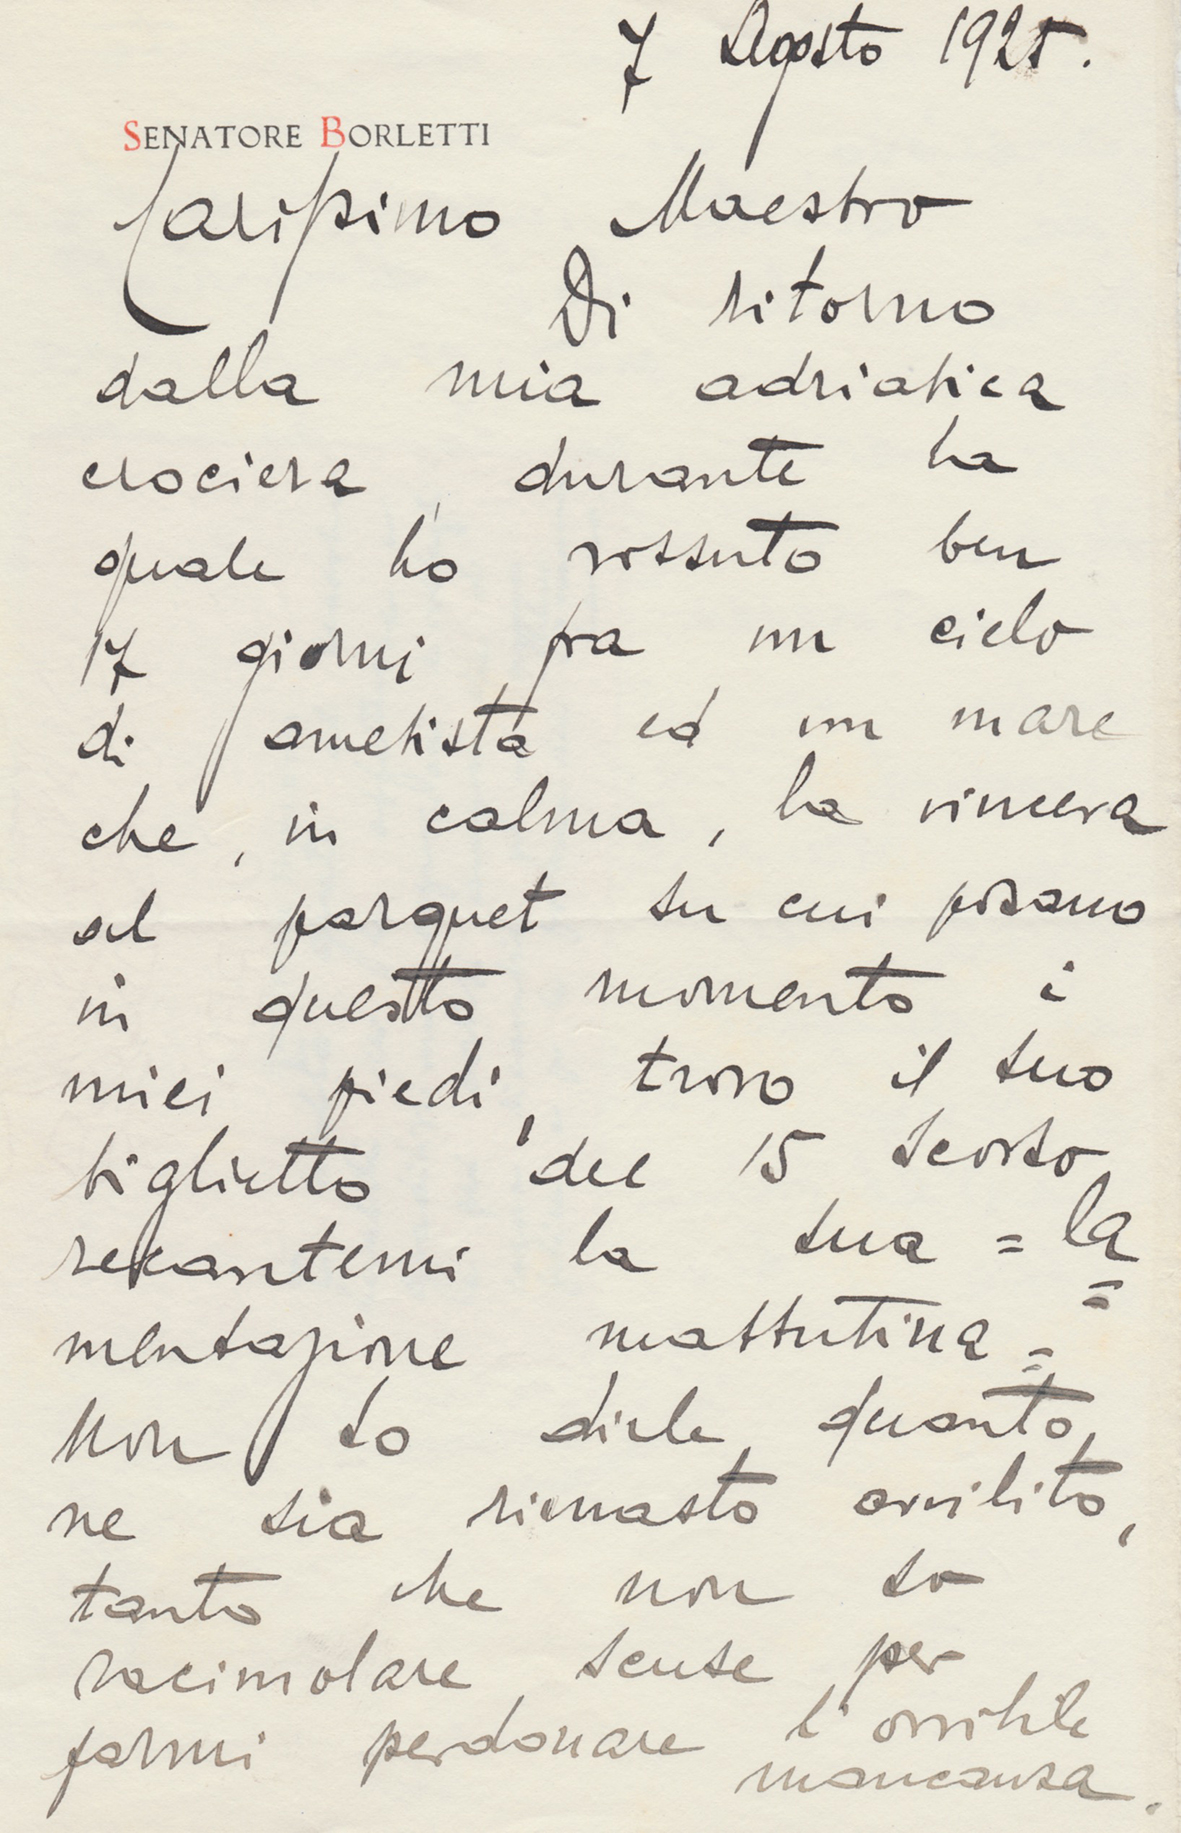 7 Agosto 1925.
SENATORE BORLETTI
Carissimo Maestro
Di ritorno
dalla mia adriatica
crociera, durante la
quale ho vossuto ben
17 giorni fra un cielo
di ametista ed un mare
che, in calma, la vinceva
sul parquet su cui posano
in questo momento i
miei piedi, trovo il suo
biglietto del 15 scorso
recantemi la sua = la
=
mentazione mattutina =
Non so dirle quanto
ne sia rimasto avvilito,
tanto che non so
racimolare scuse per
farmi perdonare l'orribile
mancanza.